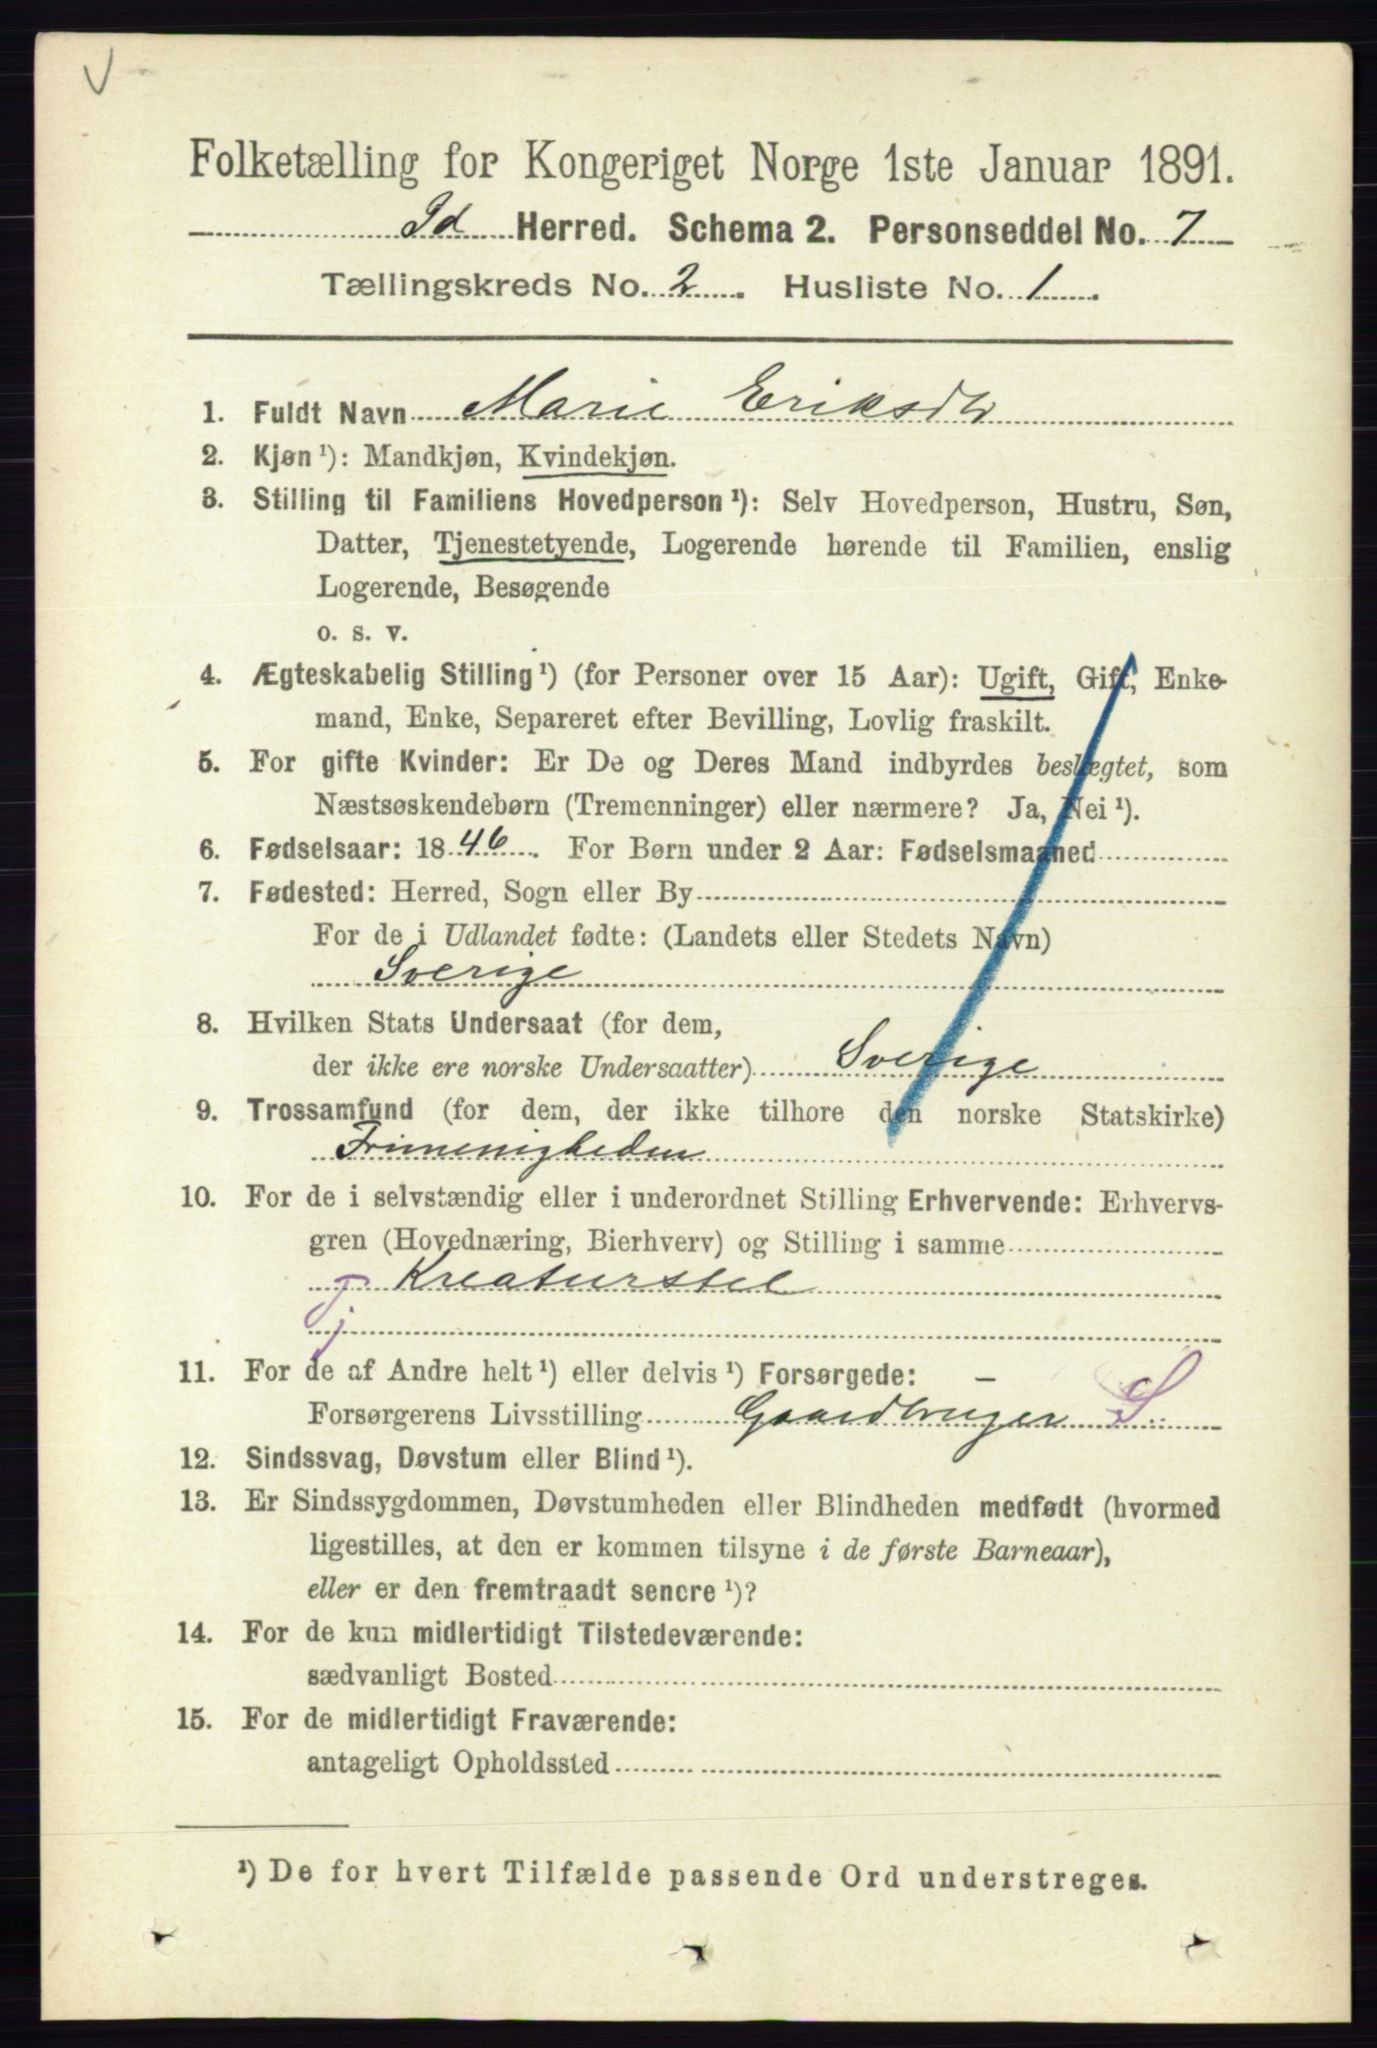 V
Folketælling for Kongeriget Norge 1ste Januar 1891.
Id Herred. Schema 2. Personseddel No. 7
Tællingskreds No. 2. Husliste No. 1.
1. Fuldt Navn Marie Eriksdtr
2. Kjøn ¹): Mandkjøn, Kvindekjøn.
3. Stilling til Familiens Hovedperson ¹): Selv Hovedperson, Hustru, Søn,
Datter, Tjenestetyende, Logerende hørende til Familien, enslig
Logerende, Besøgende
o. s. v.
4. Ægteskabelig Stilling ¹) (for Personer over 15 Aar): Ugift, Gift, Enke-
mand, Enke, Separeret efter Bevilling, Lovlig fraskilt.
5. For gifte Kvinder: Er De og Deres Mand indbyrdes beslægtet, som
Næstsøskendebørn (Tremenninger) eller nærmere? Ja, Nei ¹).
6. Fødselsaar: 1846. For Børn under 2 Aar: Fødselsmaaned
7. Fødested: Herred, Sogn eller By
For de i Udlandet fødte: (Landets eller Stedets Navn)
Sverige
8. Hvilken Stats Undersaat (for dem,
der ikke ere norske Undersaatter) Sverige
9. Trossamfund (for dem, der ikke tilhore den norske Statskirke)
Frimenigheden
10. For de i selvstændig eller i underordnet Stilling Erhvervende: Erhvervs-
gren (Hovednæring, Bierhverv) og Stilling i samme
Tj Kreaturstel
11. For de af Andre helt ¹) eller delvis ¹) Forsørgede: –
Forsørgerens Livsstilling Gaardbruger S.
12. Sindssvag, Døvstum eller Blind ¹).
13. Er Sindssygdommen, Døvstumheden eller Blindheden medfødt (hvormed
ligestilles, at den er kommen tilsyne i de første Barneaar),
eller er den fremtraadt senere ¹)?
14. For de kun midlertidigt Tilstedeværende:
sædvanligt Bosted
15. For de midlertidigt Fraværende:
antageligt Opholdssted
¹) De for hvert Tilfælde passende Ord understreges.